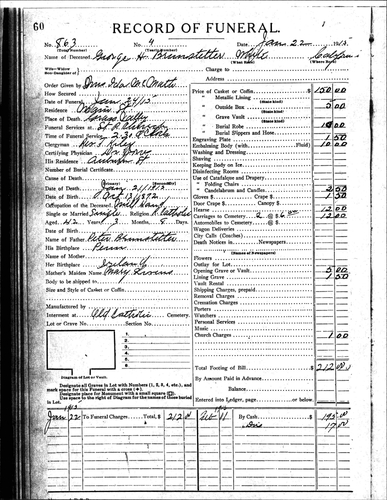 60
RECORD OF FUNERAL.
No. 863 No. 4 Date, Jan 22 1913
(Total Number) (Yearly Number)
Name of Deceased George H. Brunstetter White
(What Race) (Where Born)
Wife—Widow
Son-Daughter of Charge to
Order Given by Mrs Ida
How Secured
Date of Funeral Jan 24/13
Residence
Place of Death Grass Valley
Funeral Services at St
Time of Funeral Service 2:30
Clergyman Rev.
Certifying Physician Dr Jones
His Residence Auburn St
Number of Burial Certificate
Cause of Death
(Primary) (Secondary)
Date of Death Jan 21/1913
Date of Birth Oct
Occupation of the Deceased
Single or Married Single Religion R Catholic
Aged 42 Years 3 Months Days
Date of Birth
Name of Father Peter Brunstetter
His Birthplace Penn
Her Birthplace Ireland
Mother's Maiden Name Mary
Body to be shipped to
Size and Style of Casket or Coffin
Manufactured by
Interment at Old Catholic Cemetery.
Lot or Grave No. Section No.
1.
2.
3.
4.
5.
Diagram of Lot or Vault.
Designate all Graves in Lot with Numbers (1, 2, 3, 4, etc.), and mark space for this Funeral with a cross (+).
Designate place for Monument with a small square (□).
Use space to the right of Diagram for the names of those buried in Lot.
Address
Price of Casket or Coffin $ 150 00
" Metallic Lining
(State kind)
" Outside Box 5 00
(State kind)
" Grave Vault
(State kind)
" Burial Robe 10 00
" Burial Slippers and Hose
Engraving Plate 1 50
Embalming Body (with Fluid) 10 00
Washing and Dressing
Shaving
Keeping Body on Ice
Disinfecting Rooms
Use of Catafalque and Drapery
" Folding Chairs
" Candelabrum and Candles 2 50
Gloves $ Crape $ 1 50
Door Crape $ Canopy $
Hearse 12 00
Carriages to Cemetery 2 @ 6 00 12 00
Automobiles to Cemetery @ $
Wagon Deliveries
City Calls (Coaches)
Death Notices in Newspapers
(Names of Newspapers)
Flowers
Outlay for Lot
Opening Grave or Vault 5 00
Lining Grave 1 50
Vault Rental
Shipping Charges, prepaid
Removal Charges
Cremation Charges
Porters
Watchers
Personal Services
Music
Church Charges 1 00
Total Footing of Bill $ 212 00
By Amount Paid in Advance
Balance
Entered into Ledger, page or below.
1913
Jan 22 To Funeral Charges Total, $ 212 00 Feb 11 By Cash 195 00
Dis 17 00